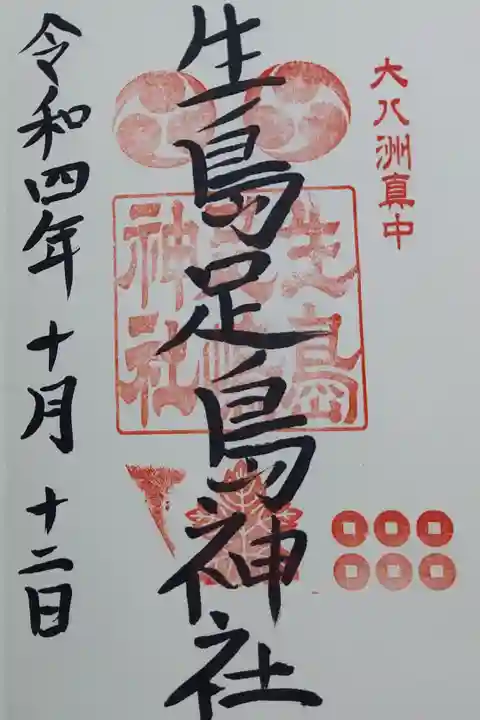 大八洲真中
生島足島神社
生島足島神社
令和四年十月十二日